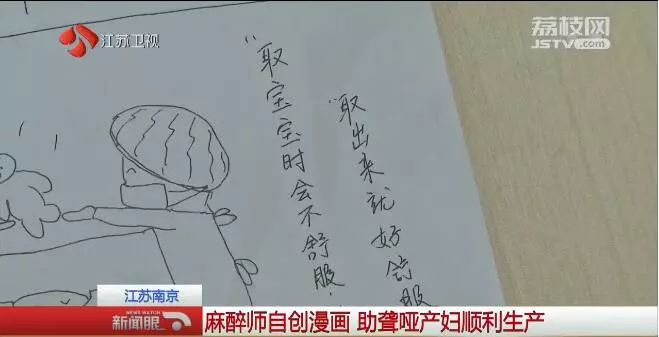 江苏卫视
荔枝网
JSTV.com
“取宝宝时会不舒服.
“取出来就好舒服
江苏南京
NEWS WATCH
新闻眼
麻醉师自创漫画 助聋哑产妇顺利生产